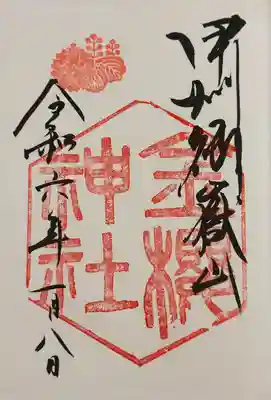 甲州御嶽山
金櫻
神社
令和六年一月八日